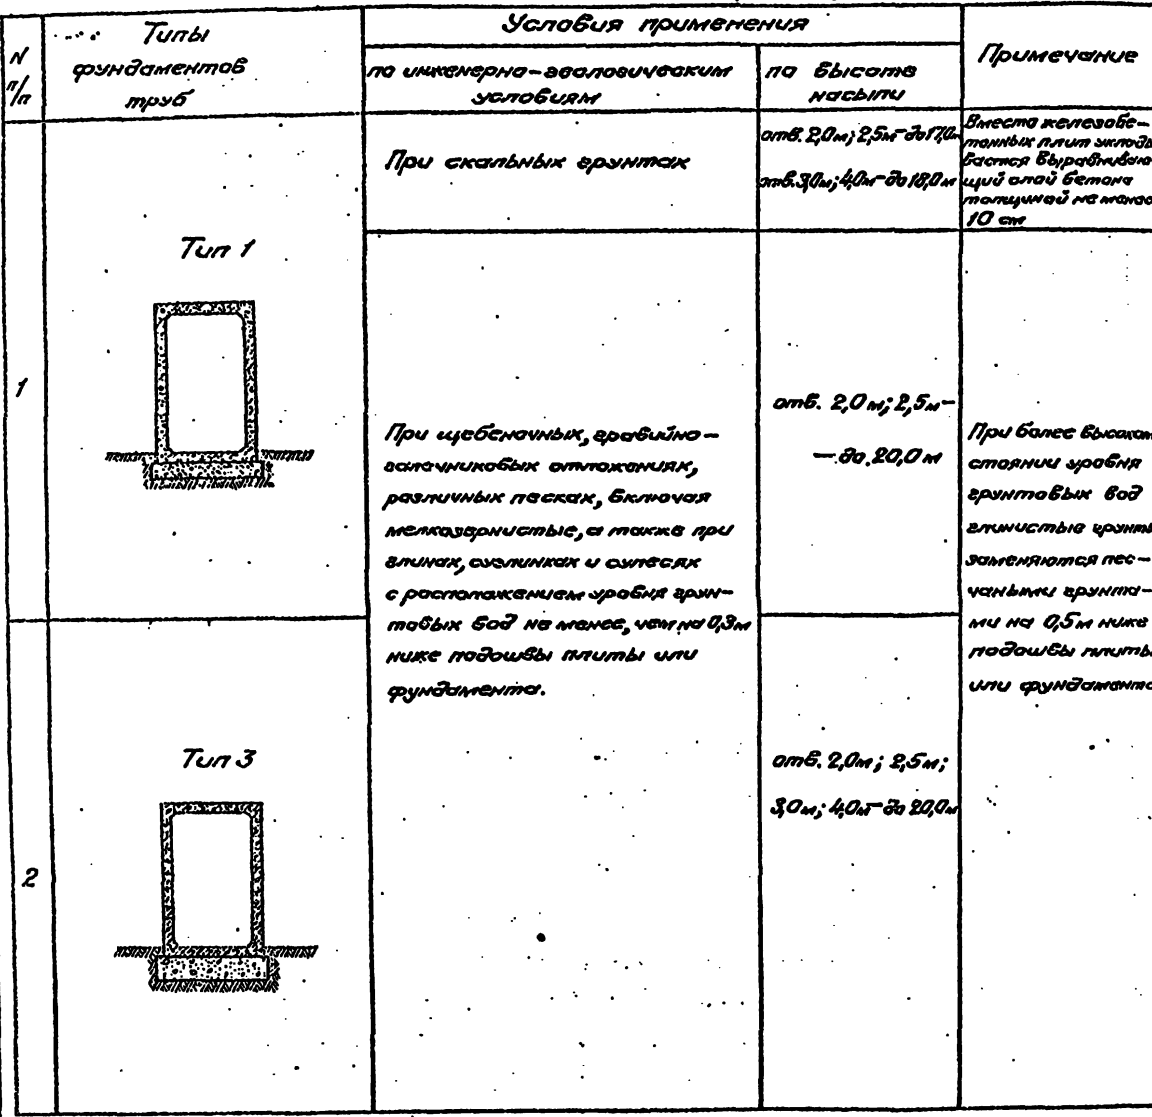 N
п/п
Типы
фундаментов
труб
Условия применения
по инженерно-геологическим
условиям
по высоте
насыпи
Примечание
1
Тип 1
При скальных грунтах
отв. 2,0м; 2,5м-до 17,0м
отв. 3,0м; 4,0м-до 18,0м
Вместо железобе-
тонных плит уклады
вается выравниваю
щий слой бетона
толщиной не менее
10 см
При щебеночных, гравийно-
галечниковых отложениях,
различных песках, включая
мелкозернистые, а также при
глинах, суглинках и супесях
с расположением уровня грун-
товых вод не менее, чем на 0,3м
ниже подошвы плиты или
фундамента.
отв. 2,0 м; 2,5м-
- до 20,0 м
При более высоком
стоянии уровня
грунтовых вод
глинистые грунты
заменяются пес-
чаными грунта-
ми на 0,5м ниже
подошвы плиты
или фундамента
2
Тип 3
отв. 2,0м; 2,5м;
3,0м; 4,0м-до 20,0м